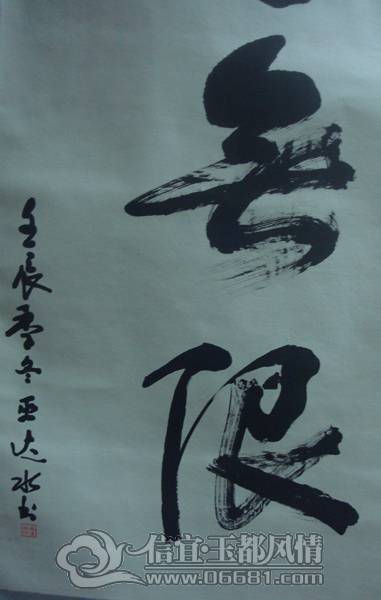 無限
壬辰季冬亚达水书
信宜·玉都风情
www.06681.com